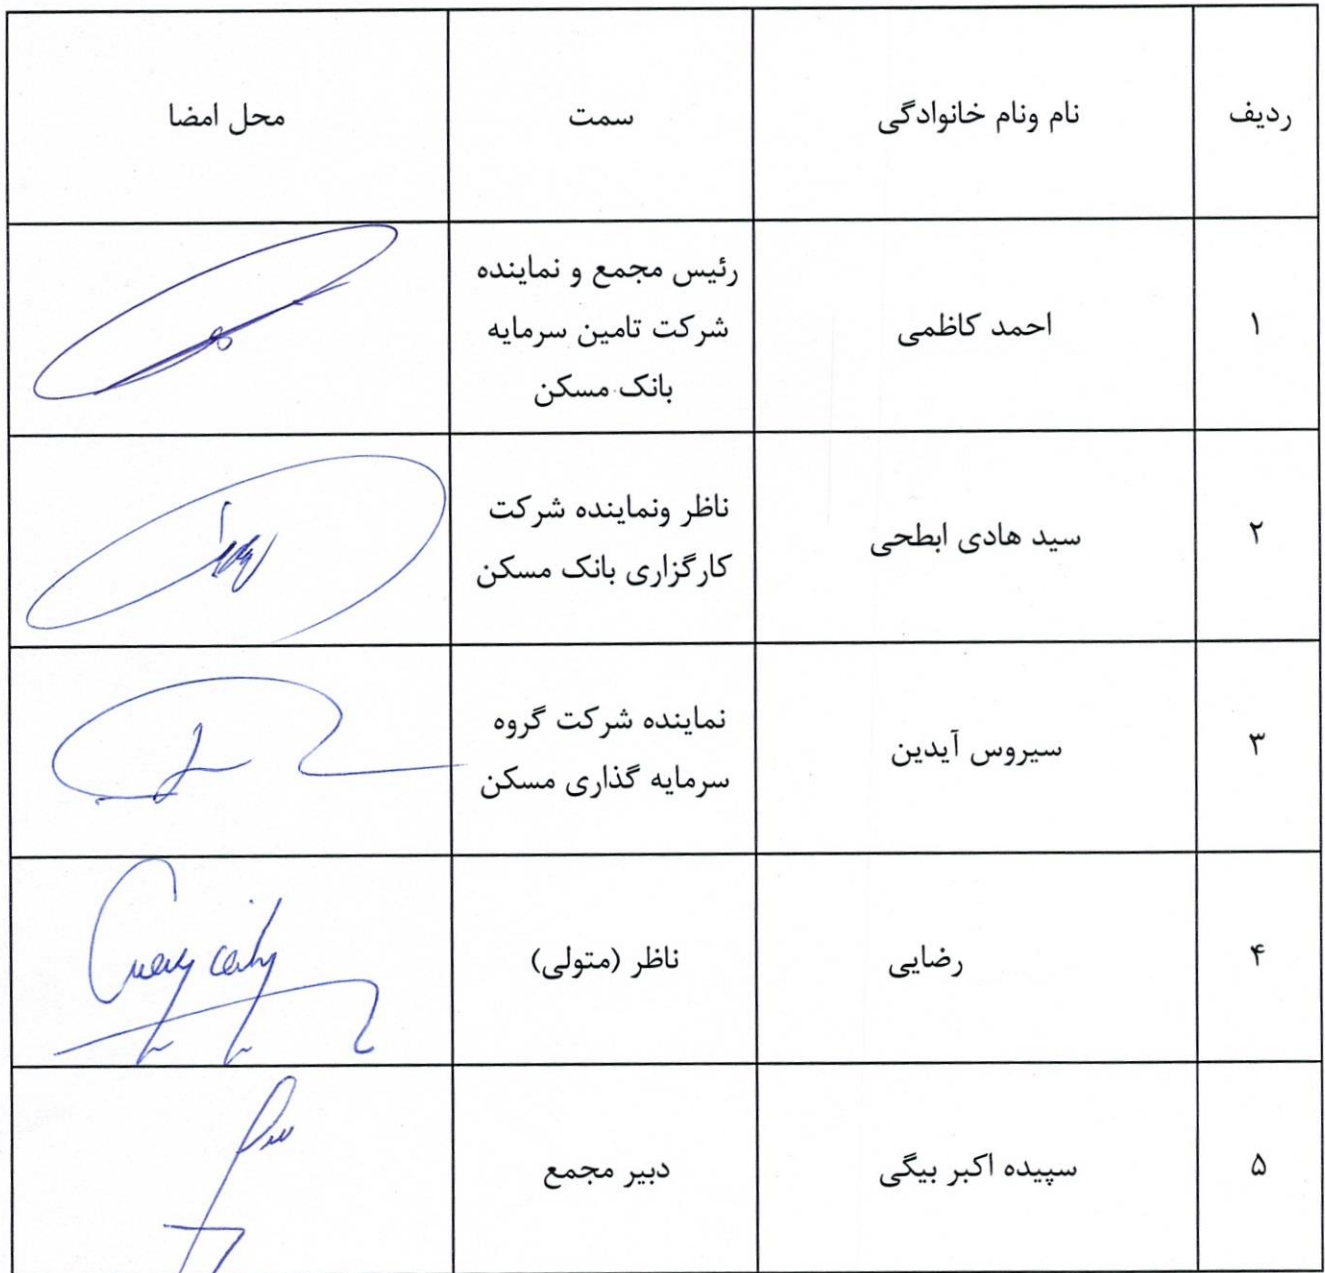 ردیف
نام ونام خانوادگی
سمت
محل امضا
۱
احمد کاظمی
رئیس مجمع و نماینده
شرکت تامین سرمایه
بانک مسکن
۲
سید هادی ابطحی
ناظر ونماینده شرکت
کارگزاری بانک مسکن
۳
سیروس آیدین
نماینده شرکت گروه
سرمایه گذاری مسکن
۴
رضایی
ناظر (متولی)
۵
سپیده اکبر بیگی
دبیر مجمع